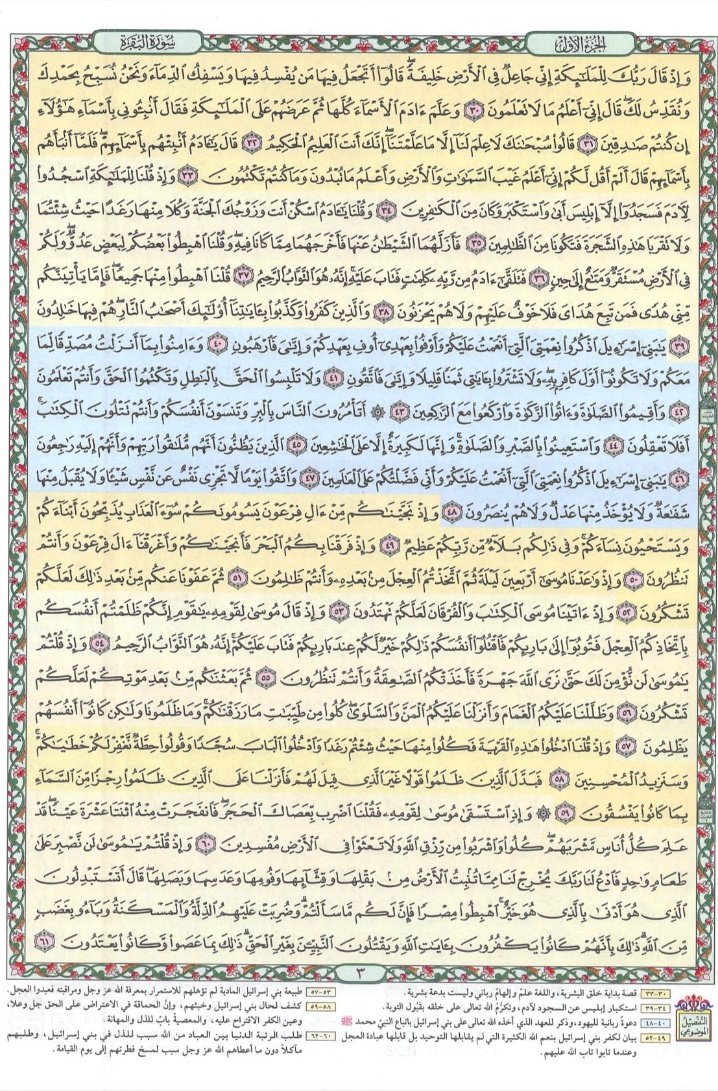 الجزء الأول
سورة البقرة
وَإِذْ قَالَ رَبُّكَ لِلْمَلَٰٓئِكَةِ إِنِّي جَاعِلٌ فِي ٱلْأَرْضِ خَلِيفَةً ۖ قَالُوٓا۟ أَتَجْعَلُ فِيهَا مَن يُفْسِدُ فِيهَا وَيَسْفِكُ ٱلدِّمَآءَ وَنَحْنُ نُسَبِّحُ بِحَمْدِكَ
وَنُقَدِّسُ لَكَ ۖ قَالَ إِنِّيٓ أَعْلَمُ مَا لَا تَعْلَمُونَ ٣٠ وَعَلَّمَ ءَادَمَ ٱلْأَسْمَآءَ كُلَّهَا ثُمَّ عَرَضَهُمْ عَلَى ٱلْمَلَٰٓئِكَةِ فَقَالَ أَنۢبِـُٔونِي بِأَسْمَآءِ هَٰٓؤُلَآءِ
إِن كُنتُمْ صَٰدِقِينَ ٣١ قَالُوا۟ سُبْحَٰنَكَ لَا عِلْمَ لَنَآ إِلَّا مَا عَلَّمْتَنَآ ۖ إِنَّكَ أَنتَ ٱلْعَلِيمُ ٱلْحَكِيمُ ٣٢ قَالَ يَٰٓـَٔادَمُ أَنۢبِئْهُم بِأَسْمَآئِهِمْ ۖ فَلَمَّآ أَنۢبَأَهُم
بِأَسْمَآئِهِمْ قَالَ أَلَمْ أَقُل لَّكُمْ إِنِّيٓ أَعْلَمُ غَيْبَ ٱلسَّمَٰوَٰتِ وَٱلْأَرْضِ وَأَعْلَمُ مَا تُبْدُونَ وَمَا كُنتُمْ تَكْتُمُونَ ٣٣ وَإِذْ قُلْنَا لِلْمَلَٰٓئِكَةِ ٱسْجُدُوا۟
لِـَٔادَمَ فَسَجَدُوٓا۟ إِلَّآ إِبْلِيسَ أَبَىٰ وَٱسْتَكْبَرَ وَكَانَ مِنَ ٱلْكَٰفِرِينَ ٣٤ وَقُلْنَا يَٰٓـَٔادَمُ ٱسْكُنْ أَنتَ وَزَوْجُكَ ٱلْجَنَّةَ وَكُلَا مِنْهَا رَغَدًا حَيْثُ شِئْتُمَا
وَلَا تَقْرَبَا هَٰذِهِ ٱلشَّجَرَةَ فَتَكُونَا مِنَ ٱلظَّٰلِمِينَ ٣٥ فَأَزَلَّهُمَا ٱلشَّيْطَٰنُ عَنْهَا فَأَخْرَجَهُمَا مِمَّا كَانَا فِيهِ ۖ وَقُلْنَا ٱهْبِطُوا۟ بَعْضُكُمْ لِبَعْضٍ عَدُوٌّ ۖ وَلَكُمْ
فِي ٱلْأَرْضِ مُسْتَقَرٌّ وَمَتَٰعٌ إِلَىٰ حِينٍ ٣٦ فَتَلَقَّىٰٓ ءَادَمُ مِن رَّبِّهِۦ كَلِمَٰتٍ فَتَابَ عَلَيْهِ ۚ إِنَّهُۥ هُوَ ٱلتَّوَّابُ ٱلرَّحِيمُ ٣٧ قُلْنَا ٱهْبِطُوا۟ مِنْهَا جَمِيعًا ۖ فَإِمَّا يَأْتِيَنَّكُم
مِّنِّي هُدًى فَمَن تَبِعَ هُدَايَ فَلَا خَوْفٌ عَلَيْهِمْ وَلَا هُمْ يَحْزَنُونَ ٣٨ وَٱلَّذِينَ كَفَرُوا۟ وَكَذَّبُوا۟ بِـَٔايَٰتِنَآ أُو۟لَٰٓئِكَ أَصْحَٰبُ ٱلنَّارِ ۖ هُمْ فِيهَا خَٰلِدُونَ
٣٩ يَٰبَنِيٓ إِسْرَٰٓءِيلَ ٱذْكُرُوا۟ نِعْمَتِيَ ٱلَّتِيٓ أَنْعَمْتُ عَلَيْكُمْ وَأَوْفُوا۟ بِعَهْدِيٓ أُوفِ بِعَهْدِكُمْ وَإِيَّٰيَ فَٱرْهَبُونِ ٤٠ وَءَامِنُوا۟ بِمَآ أَنزَلْتُ مُصَدِّقًا لِّمَا
مَعَكُمْ وَلَا تَكُونُوٓا۟ أَوَّلَ كَافِرٍۭ بِهِۦ ۖ وَلَا تَشْتَرُوا۟ بِـَٔايَٰتِي ثَمَنًا قَلِيلًا وَإِيَّٰيَ فَٱتَّقُونِ ٤١ وَلَا تَلْبِسُوا۟ ٱلْحَقَّ بِٱلْبَٰطِلِ وَتَكْتُمُوا۟ ٱلْحَقَّ وَأَنتُمْ تَعْلَمُونَ
٤٢ وَأَقِيمُوا۟ ٱلصَّلَوٰةَ وَءَاتُوا۟ ٱلزَّكَوٰةَ وَٱرْكَعُوا۟ مَعَ ٱلرَّٰكِعِينَ ٤٣ ۞ أَتَأْمُرُونَ ٱلنَّاسَ بِٱلْبِرِّ وَتَنسَوْنَ أَنفُسَكُمْ وَأَنتُمْ تَتْلُونَ ٱلْكِتَٰبَ ۚ
أَفَلَا تَعْقِلُونَ ٤٤ وَٱسْتَعِينُوا۟ بِٱلصَّبْرِ وَٱلصَّلَوٰةِ ۚ وَإِنَّهَا لَكَبِيرَةٌ إِلَّا عَلَى ٱلْخَٰشِعِينَ ٤٥ ٱلَّذِينَ يَظُنُّونَ أَنَّهُم مُّلَٰقُوا۟ رَبِّهِمْ وَأَنَّهُمْ إِلَيْهِ رَٰجِعُونَ
٤٦ يَٰبَنِيٓ إِسْرَٰٓءِيلَ ٱذْكُرُوا۟ نِعْمَتِيَ ٱلَّتِيٓ أَنْعَمْتُ عَلَيْكُمْ وَأَنِّي فَضَّلْتُكُمْ عَلَى ٱلْعَٰلَمِينَ ٤٧ وَٱتَّقُوا۟ يَوْمًا لَّا تَجْزِي نَفْسٌ عَن نَّفْسٍ شَيْـًٔا وَلَا يُقْبَلُ مِنْهَا
شَفَٰعَةٌ وَلَا يُؤْخَذُ مِنْهَا عَدْلٌ وَلَا هُمْ يُنصَرُونَ ٤٨ وَإِذْ نَجَّيْنَٰكُم مِّنْ ءَالِ فِرْعَوْنَ يَسُومُونَكُمْ سُوٓءَ ٱلْعَذَابِ يُذَبِّحُونَ أَبْنَآءَكُمْ
وَيَسْتَحْيُونَ نِسَآءَكُمْ ۚ وَفِي ذَٰلِكُم بَلَآءٌ مِّن رَّبِّكُمْ عَظِيمٌ ٤٩ وَإِذْ فَرَقْنَا بِكُمُ ٱلْبَحْرَ فَأَنجَيْنَٰكُمْ وَأَغْرَقْنَآ ءَالَ فِرْعَوْنَ وَأَنتُمْ
تَنظُرُونَ ٥٠ وَإِذْ وَٰعَدْنَا مُوسَىٰٓ أَرْبَعِينَ لَيْلَةً ثُمَّ ٱتَّخَذْتُمُ ٱلْعِجْلَ مِنۢ بَعْدِهِۦ وَأَنتُمْ ظَٰلِمُونَ ٥١ ثُمَّ عَفَوْنَا عَنكُم مِّنۢ بَعْدِ ذَٰلِكَ لَعَلَّكُمْ
تَشْكُرُونَ ٥٢ وَإِذْ ءَاتَيْنَا مُوسَى ٱلْكِتَٰبَ وَٱلْفُرْقَانَ لَعَلَّكُمْ تَهْتَدُونَ ٥٣ وَإِذْ قَالَ مُوسَىٰ لِقَوْمِهِۦ يَٰقَوْمِ إِنَّكُمْ ظَلَمْتُمْ أَنفُسَكُم
بِٱتِّخَاذِكُمُ ٱلْعِجْلَ فَتُوبُوٓا۟ إِلَىٰ بَارِئِكُمْ فَٱقْتُلُوٓا۟ أَنفُسَكُمْ ذَٰلِكُمْ خَيْرٌ لَّكُمْ عِندَ بَارِئِكُمْ فَتَابَ عَلَيْكُمْ ۚ إِنَّهُۥ هُوَ ٱلتَّوَّابُ ٱلرَّحِيمُ ٥٤ وَإِذْ قُلْتُمْ
يَٰمُوسَىٰ لَن نُّؤْمِنَ لَكَ حَتَّىٰ نَرَى ٱللَّهَ جَهْرَةً فَأَخَذَتْكُمُ ٱلصَّٰعِقَةُ وَأَنتُمْ تَنظُرُونَ ٥٥ ثُمَّ بَعَثْنَٰكُم مِّنۢ بَعْدِ مَوْتِكُمْ لَعَلَّكُمْ
تَشْكُرُونَ ٥٦ وَظَلَّلْنَا عَلَيْكُمُ ٱلْغَمَامَ وَأَنزَلْنَا عَلَيْكُمُ ٱلْمَنَّ وَٱلسَّلْوَىٰ ۖ كُلُوا۟ مِن طَيِّبَٰتِ مَا رَزَقْنَٰكُمْ ۖ وَمَا ظَلَمُونَا وَلَٰكِن كَانُوٓا۟ أَنفُسَهُمْ
يَظْلِمُونَ ٥٧ وَإِذْ قُلْنَا ٱدْخُلُوا۟ هَٰذِهِ ٱلْقَرْيَةَ فَكُلُوا۟ مِنْهَا حَيْثُ شِئْتُمْ رَغَدًا وَٱدْخُلُوا۟ ٱلْبَابَ سُجَّدًا وَقُولُوا۟ حِطَّةٌ نَّغْفِرْ لَكُمْ خَطَٰيَٰكُمْ ۚ
وَسَنَزِيدُ ٱلْمُحْسِنِينَ ٥٨ فَبَدَّلَ ٱلَّذِينَ ظَلَمُوا۟ قَوْلًا غَيْرَ ٱلَّذِي قِيلَ لَهُمْ فَأَنزَلْنَا عَلَى ٱلَّذِينَ ظَلَمُوا۟ رِجْزًا مِّنَ ٱلسَّمَآءِ
بِمَا كَانُوا۟ يَفْسُقُونَ ٥٩ ۞ وَإِذِ ٱسْتَسْقَىٰ مُوسَىٰ لِقَوْمِهِۦ فَقُلْنَا ٱضْرِب بِّعَصَاكَ ٱلْحَجَرَ ۖ فَٱنفَجَرَتْ مِنْهُ ٱثْنَتَا عَشْرَةَ عَيْنًا ۖ قَدْ
عَلِمَ كُلُّ أُنَاسٍ مَّشْرَبَهُمْ ۖ كُلُوا۟ وَٱشْرَبُوا۟ مِن رِّزْقِ ٱللَّهِ وَلَا تَعْثَوْا۟ فِي ٱلْأَرْضِ مُفْسِدِينَ ٦٠ وَإِذْ قُلْتُمْ يَٰمُوسَىٰ لَن نَّصْبِرَ عَلَىٰ
طَعَامٍ وَٰحِدٍ فَٱدْعُ لَنَا رَبَّكَ يُخْرِجْ لَنَا مِمَّا تُنۢبِتُ ٱلْأَرْضُ مِنۢ بَقْلِهَا وَقِثَّآئِهَا وَفُومِهَا وَعَدَسِهَا وَبَصَلِهَا ۖ قَالَ أَتَسْتَبْدِلُونَ
ٱلَّذِي هُوَ أَدْنَىٰ بِٱلَّذِي هُوَ خَيْرٌ ۚ ٱهْبِطُوا۟ مِصْرًا فَإِنَّ لَكُم مَّا سَأَلْتُمْ ۗ وَضُرِبَتْ عَلَيْهِمُ ٱلذِّلَّةُ وَٱلْمَسْكَنَةُ وَبَآءُو بِغَضَبٍ
مِّنَ ٱللَّهِ ۗ ذَٰلِكَ بِأَنَّهُمْ كَانُوا۟ يَكْفُرُونَ بِـَٔايَٰتِ ٱللَّهِ وَيَقْتُلُونَ ٱلنَّبِيِّـۧنَ بِغَيْرِ ٱلْحَقِّ ۗ ذَٰلِكَ بِمَا عَصَوا۟ وَّكَانُوا۟ يَعْتَدُونَ ٦١
٣
التفصيل الموضوعي
٣٠-٣٣ قصة بداية خلق البشرية، واللغة علمٌ وإلهامٌ رباني وليست بدعة بشرية.
٣٤-٣٩ استكبار إبليس عن السجود لآدم، وتكرُّم الله تعالى على خلقه بقَبُول التوبة.
٤٠-٤٨ دعوةٌ ربانية لليهود، وذكر للعهد الذي أخذه الله تعالى على بني إسرائيل باتباع النبيّ محمد ﷺ
٤٩-٥٢ بيان لكفر بني إسرائيل بنعم الله الكثيرة التي لم يقابلها التوحيد بل قابلها عبادة العجل
وعندما تابوا تاب الله عليهم.
٥٣-٥٧ طبيعة بني إسرائيل المادية لم تؤهلهم للاستمرار بمعرفة الله عز وجل ومراقبته فعبدوا العجل.
٥٨-٥٩ كشف لحال بني إسرائيل وخبثهم، وإنَّ الحماقة في الاعتراض على الحق جل وعلا،
وعين الكفر الاقتراح عليه، والمعصيةُ بابٌ للذل والمهانة.
٦٠-٦٢ طلب الرتبة الدنيا بين العباد من الله سبب للذل في بني إسرائيل، وطلبهم
مآكلاً دون ما أعطاهم الله عز وجل سبب لمسخ فطرتهم إلى يوم القيامة.